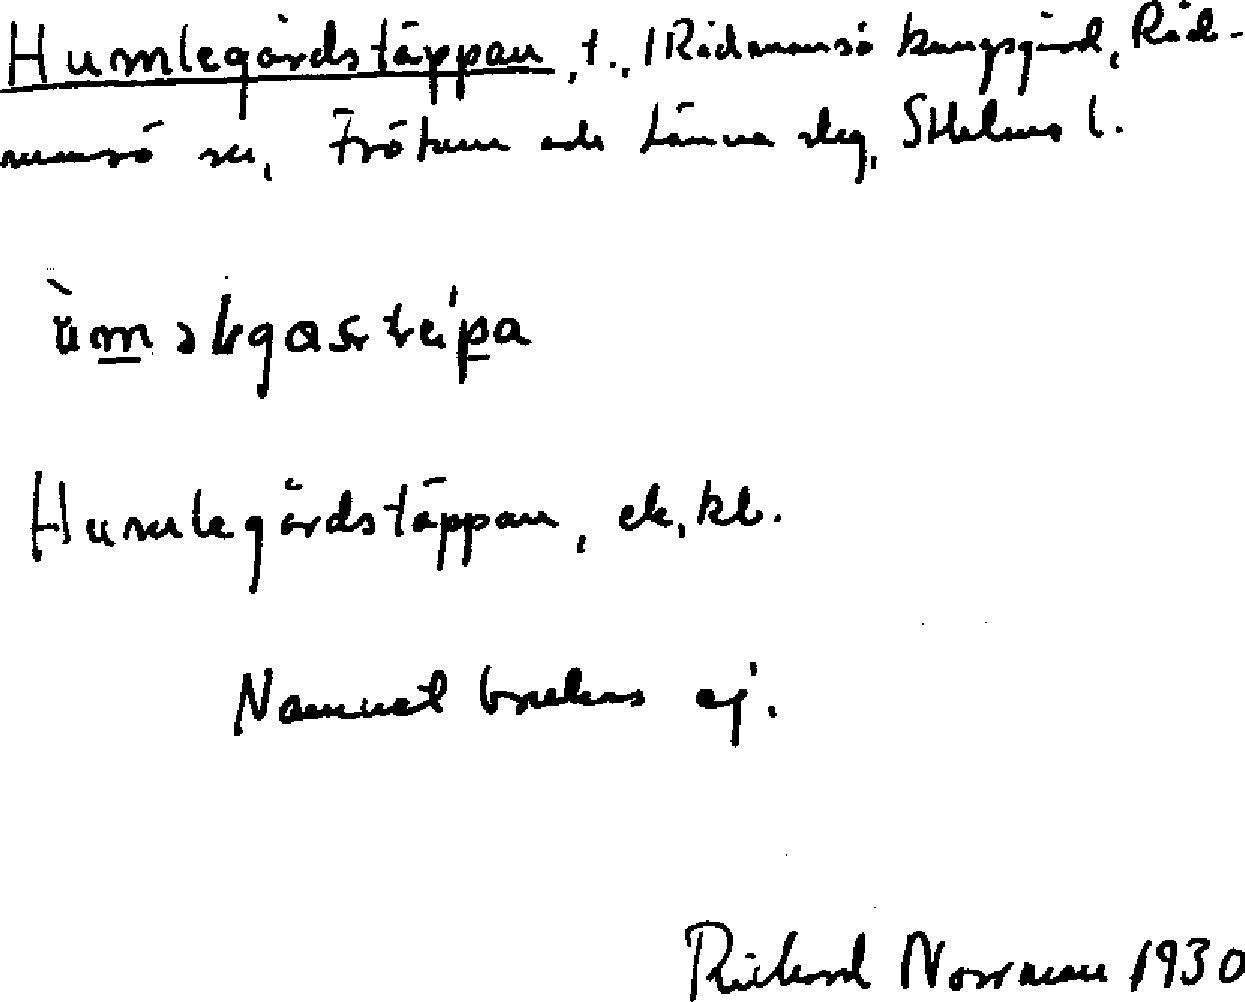 Humlegårdstäppan, t., Rådmansö kungsgård, Råd-
mansö sn, Frötuna och Länna slg, Sthlms l.
Humlegårdstäppan, ek. kb.
Namnet brukas ej.
Rickard Norrman 1930